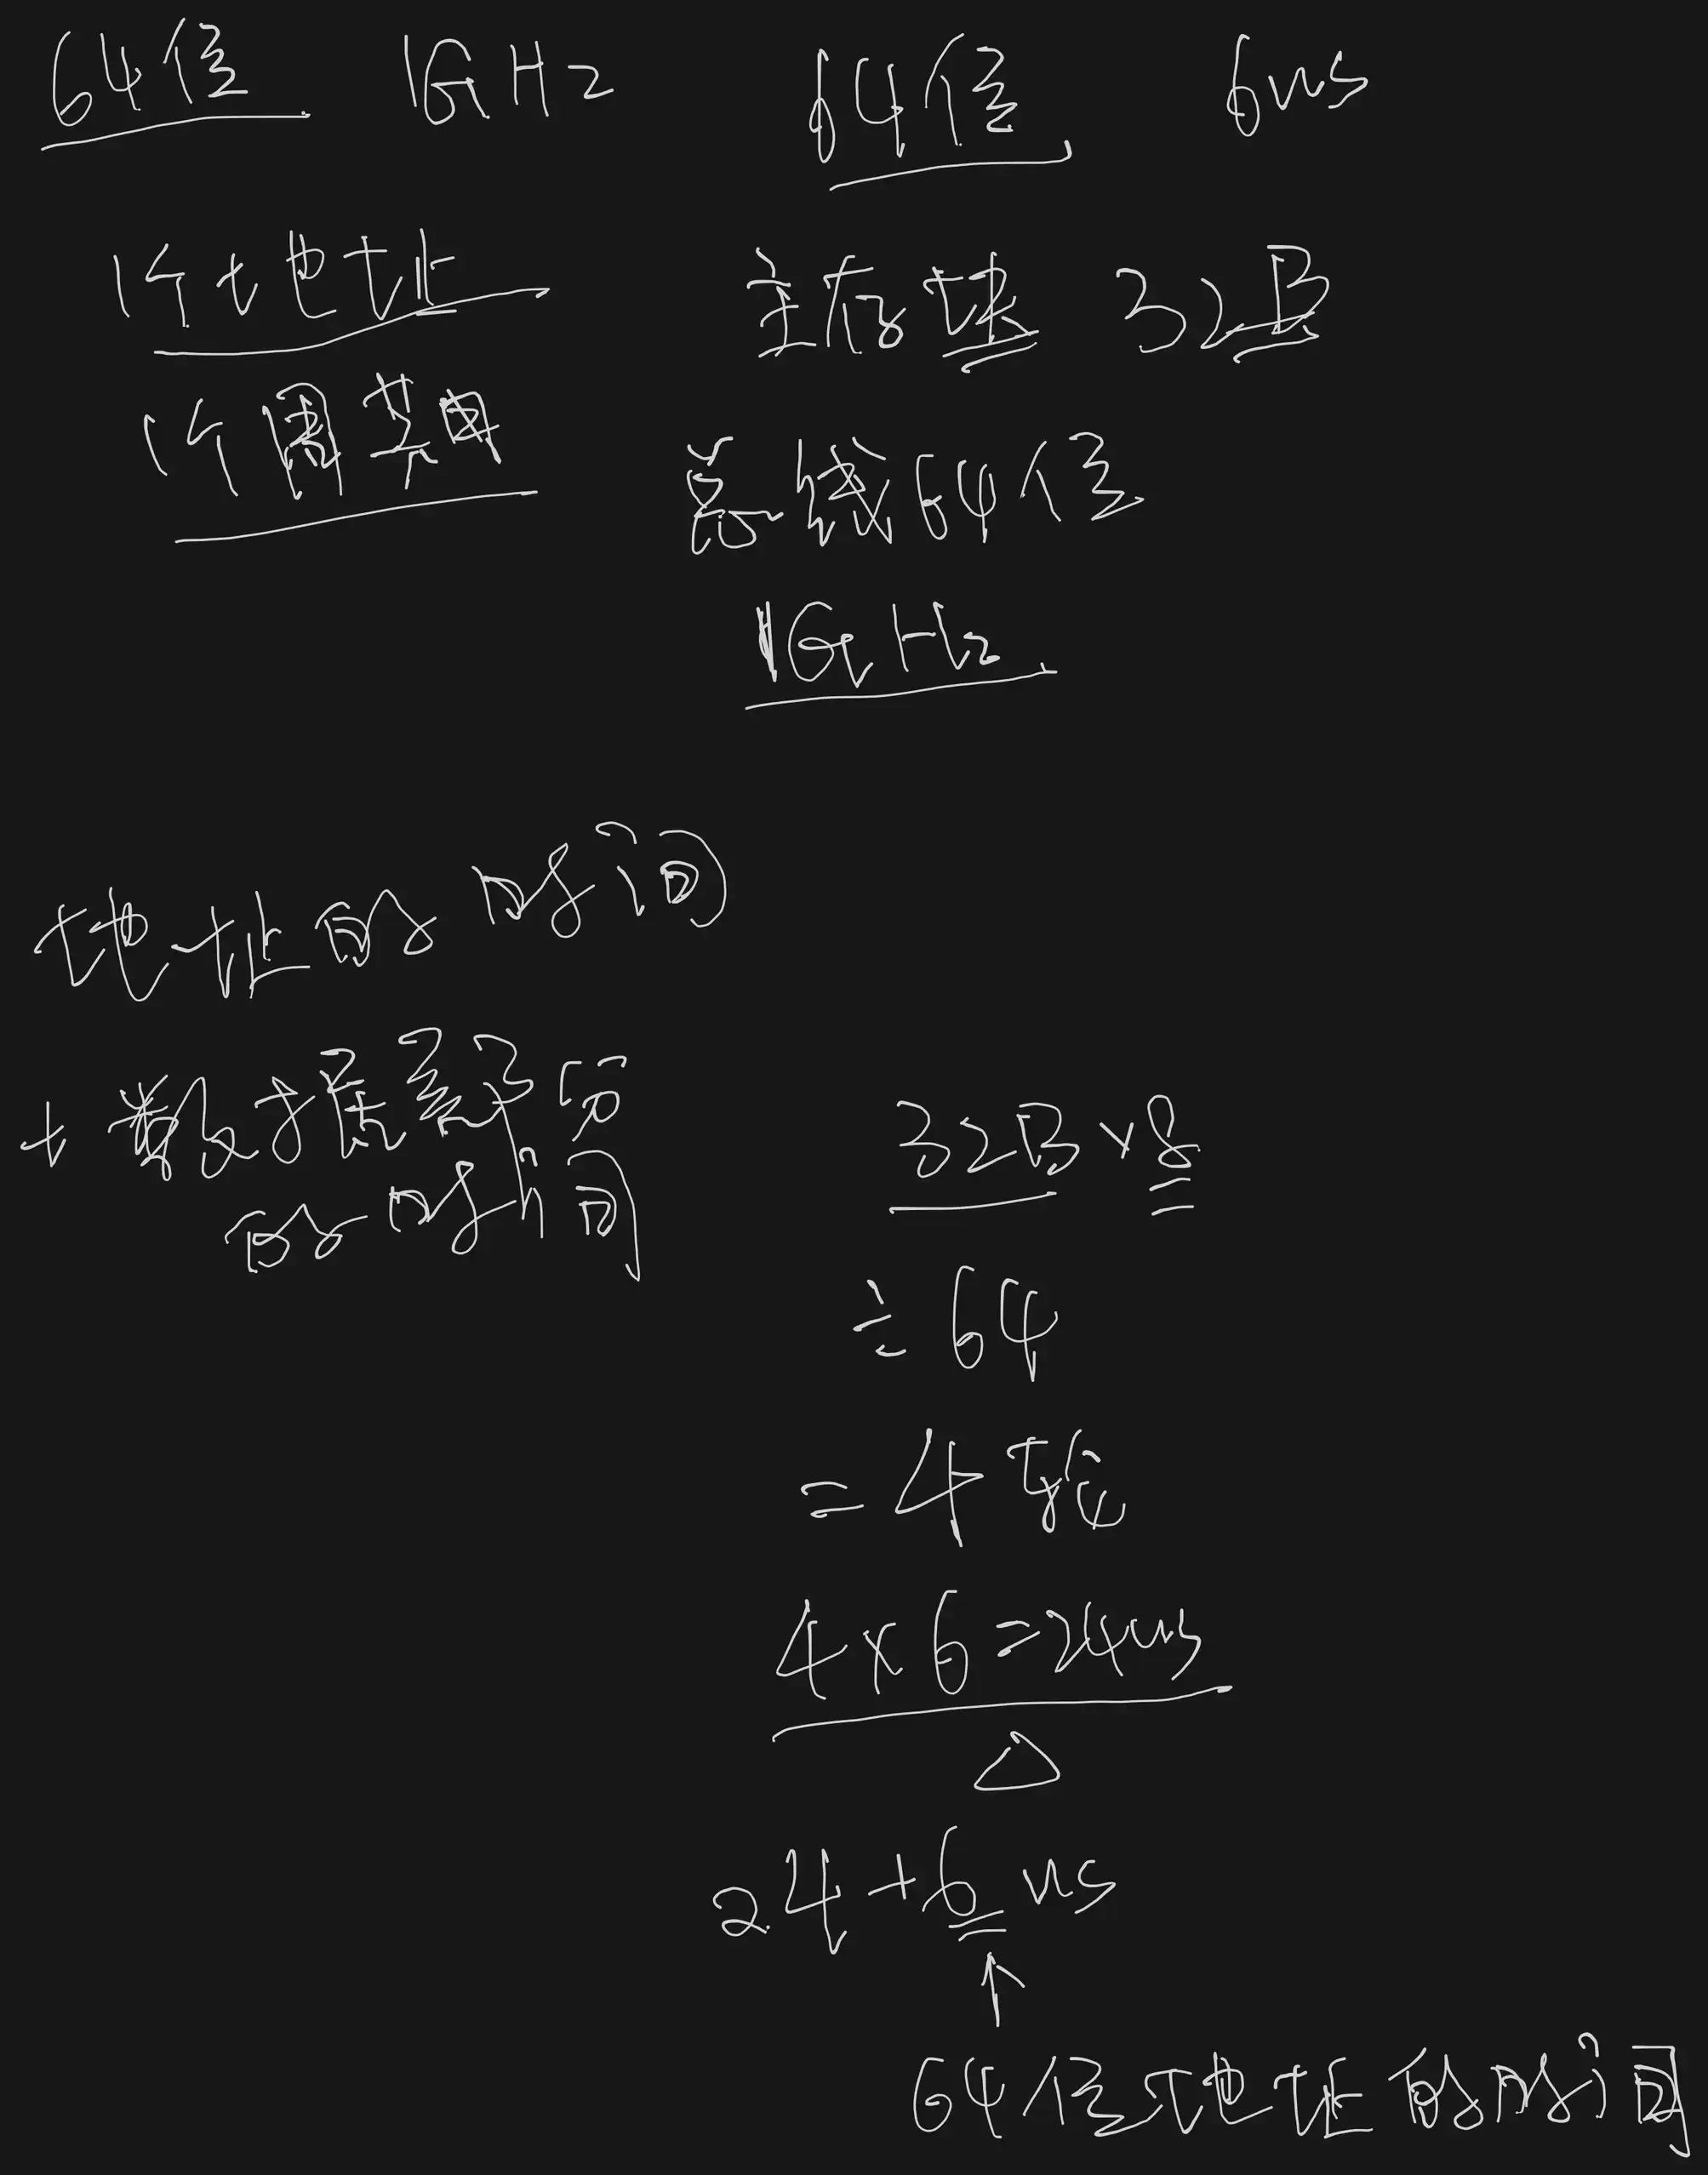 64位 1GHz 64位 6ns
1个地址 主存块 32B
1个周期 总线64位
1GHz
地址的时间
+ 数据
的时间
32B×8
÷64
=4轮
4×6=24ns
24+6ns
64位地址的时间